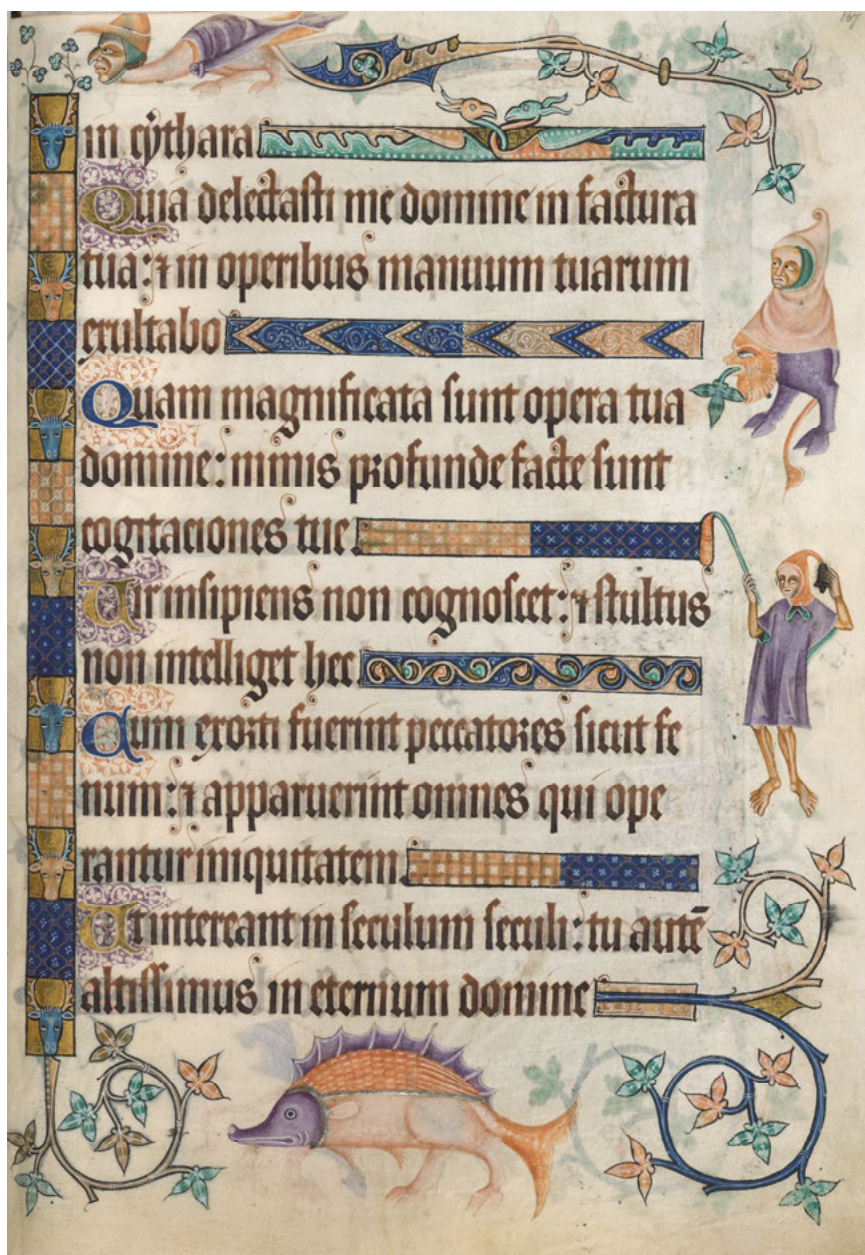 167
in cythara
Quia delectasti me domine in factura
tua: ⁊ in operibus manuum tuarum
exultabo
Quam magnificata sunt opera tua
domine: nimis profunde facte sunt
cogitaciones tue.
Uir insipiens non cognoscet: ⁊ stultus
non intelliget hec
Cum exorti fuerint peccatores sicut fe
num: ⁊ apparuerint omnes qui ope
rantur iniquitatem.
Ut intereant in seculum seculi: tu autē
altissimus in eternum domine